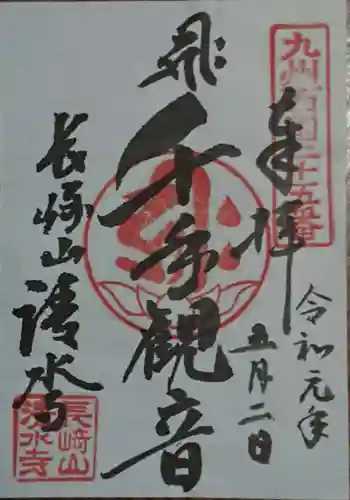 九州西国二十五番
奉拝
令和元年
五月二日
千手観音
長崎山清水
長崎山
清水寺